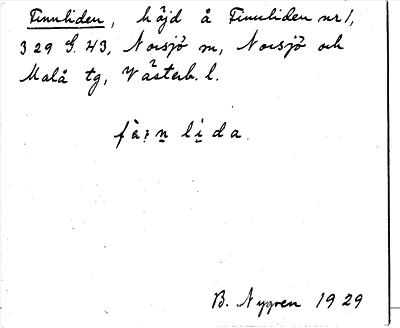 Finnliden, höjd å Finnliden nr 1,
329 S. 43, Norsjö sn, Norsjö och
Malå tg, Västerb. l.
B. Nygren 1929